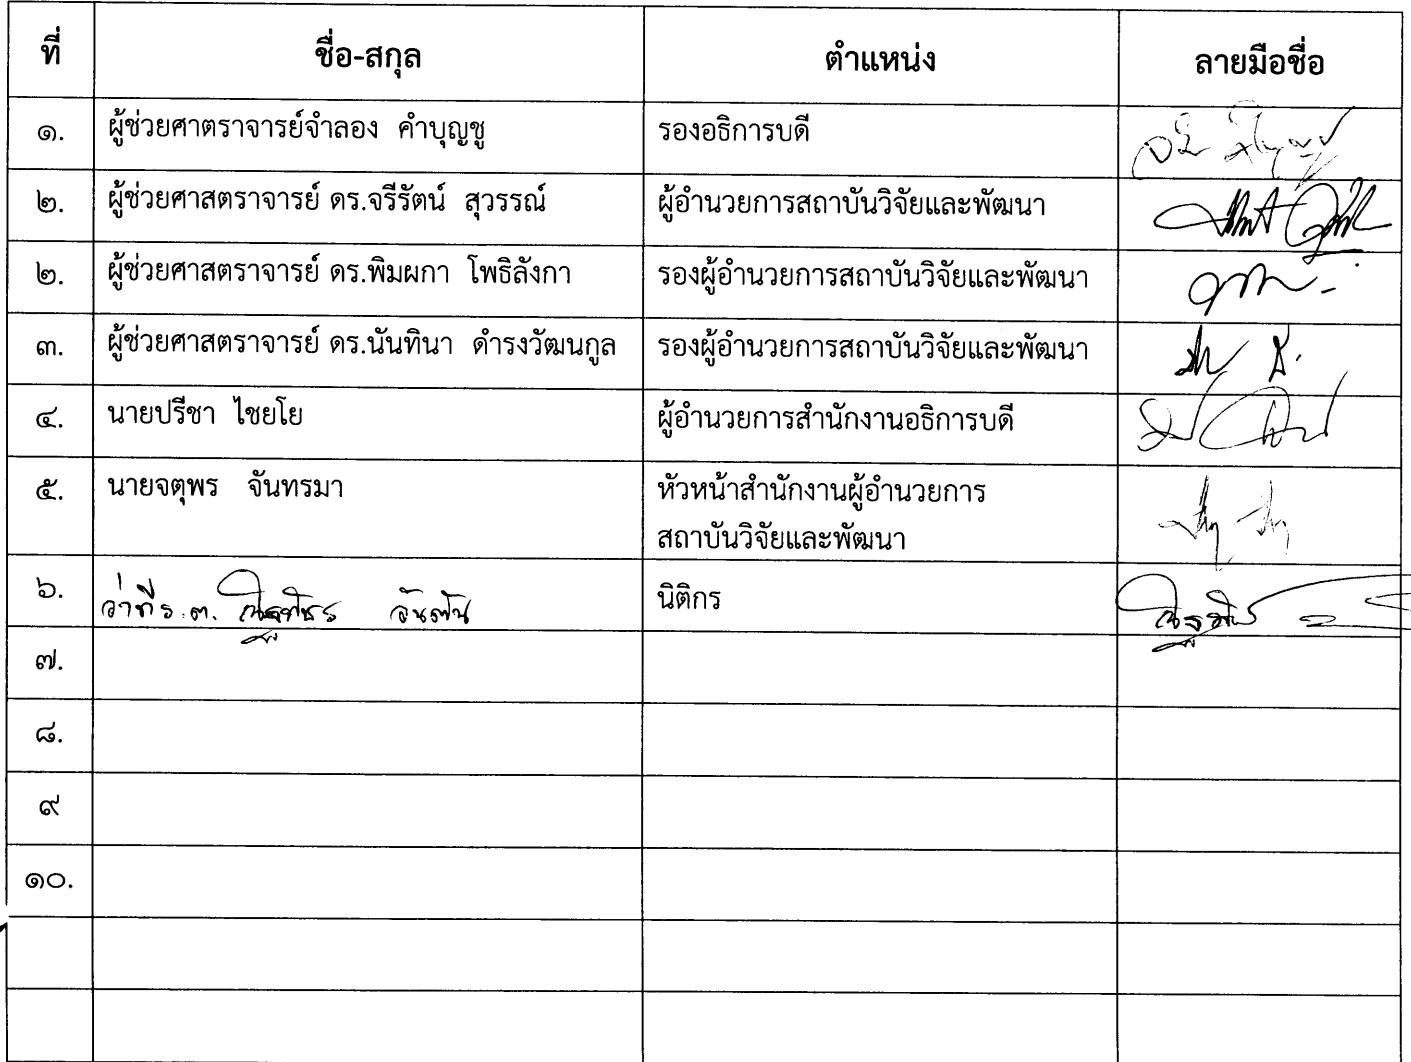 ที่ ชื่อ-สกุล ตำแหน่ง ลายมือชื่อ
๑. ผู้ช่วยศาตราจารย์จำลอง คำบุญชู รองอธิการบดี
๒. ผู้ช่วยศาสตราจารย์ ดร.จรีรัตน์ สุวรรณ์ ผู้อำนวยการสถาบันวิจัยและพัฒนา
๒. ผู้ช่วยศาสตราจารย์ ดร.พิมผกา โพธิลังกา รองผู้อำนวยการสถาบันวิจัยและพัฒนา
๓. ผู้ช่วยศาสตราจารย์ ดร.นันทินา ดำรงวัฒนกูล รองผู้อำนวยการสถาบันวิจัยและพัฒนา
๔. นายปรีชา ไชยโย ผู้อำนวยการสำนักงานอธิการบดี
๕. นายจตุพร จันทรมา หัวหน้าสำนักงานผู้อำนวยการ
สถาบันวิจัยและพัฒนา
๖. ว่าที่ ร.ต. นิติกร
๗.
๘.
๙
๑๐.